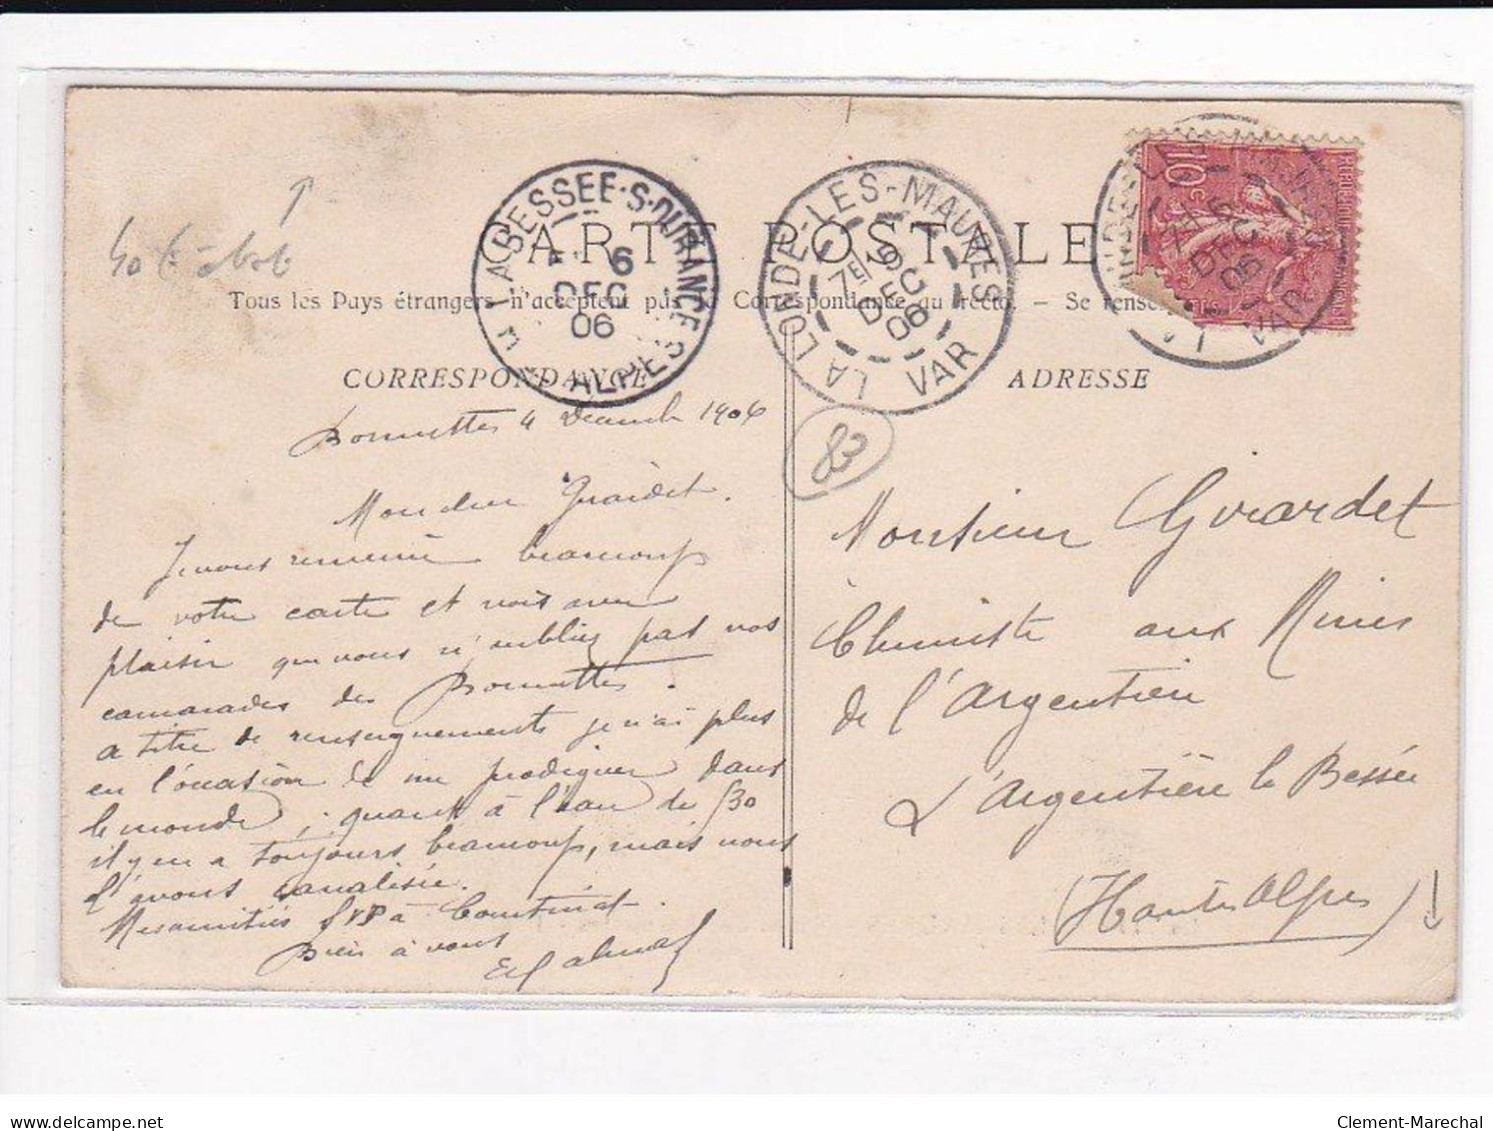 CARTE POSTALE
Tous les Pays étrangers n'acceptent pas la Correspondance au recto. – Se renseigner
CORRESPONDANCE
ADRESSE
LABESSEE-S-DURANCE
6
DEC
06
Htes ALPES
LA LONDE-LES-MAURES
7E
DEC
06
VAR
REPUBLIQUE FRANÇAISE
10c
DEC
06
VAR
83
Bormettes 4 Décembre 1906
Monsieur Girardet.
Je vous remercie beaucoup
de votre carte et vois avec
plaisir que vous n'oubliez pas vos
camarades des Bormettes.
a titre de renseignements je n'ai plus
en l'occasion de me prodiguer dans
le monde, quant à l'eau de 530
il y en a toujours beaucoup, mais nous
l'avons canalisée.
Mes amitiés SVP à
Bien à vous
Monsieur Girardet
Chimiste aux Mines
de l'Argentière
L'Argentière la Bessée
(Hautes Alpes)
Clement-Marechal
www.delcampe.net